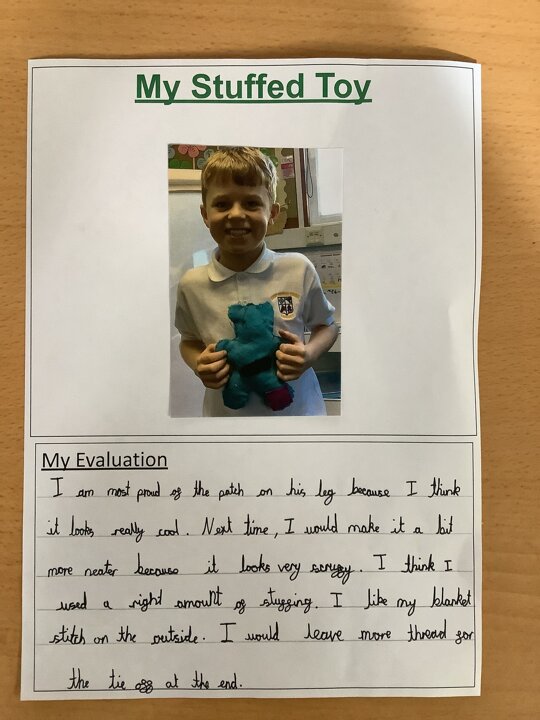 My Stuffed Toy
My Evaluation
I am most proud of the patch on his leg because I think
it looks really cool. Next time, I would make it a bit
more neater because it looks very scruffy. I think I
used a right amount of stuffing. I like my blanket
stitch on the outside. I would leave more thread for
the tie off at the end.